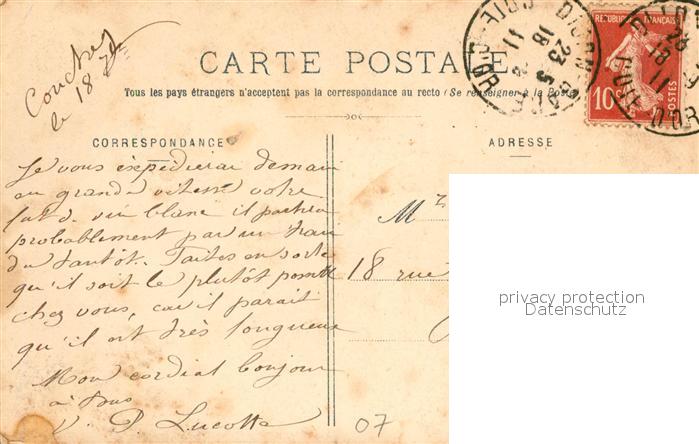 Couches
le 18
CARTE POSTALE
Tous les pays étrangers n'acceptent pas la correspondance au recto (Se renseigner à la Poste
CORRESPONDANCE
Je vous expédierai demain
en grande vitesse votre
fût de vin blanc il partira
probablement par un train
du tantôt. Faites en sorte
qu'il soit le plutôt possible
chez vous, car il parait
qu'il est très fougueux
Mon cordial bonjour
à tous
V. P. Lucotte
07
ADRESSE
M
18 rue
REPUBLIQUE FRANÇAISE
10
POSTES
DIJON GARE
COTE-D'OR
18
23 5
11
privacy protection
Datenschutz